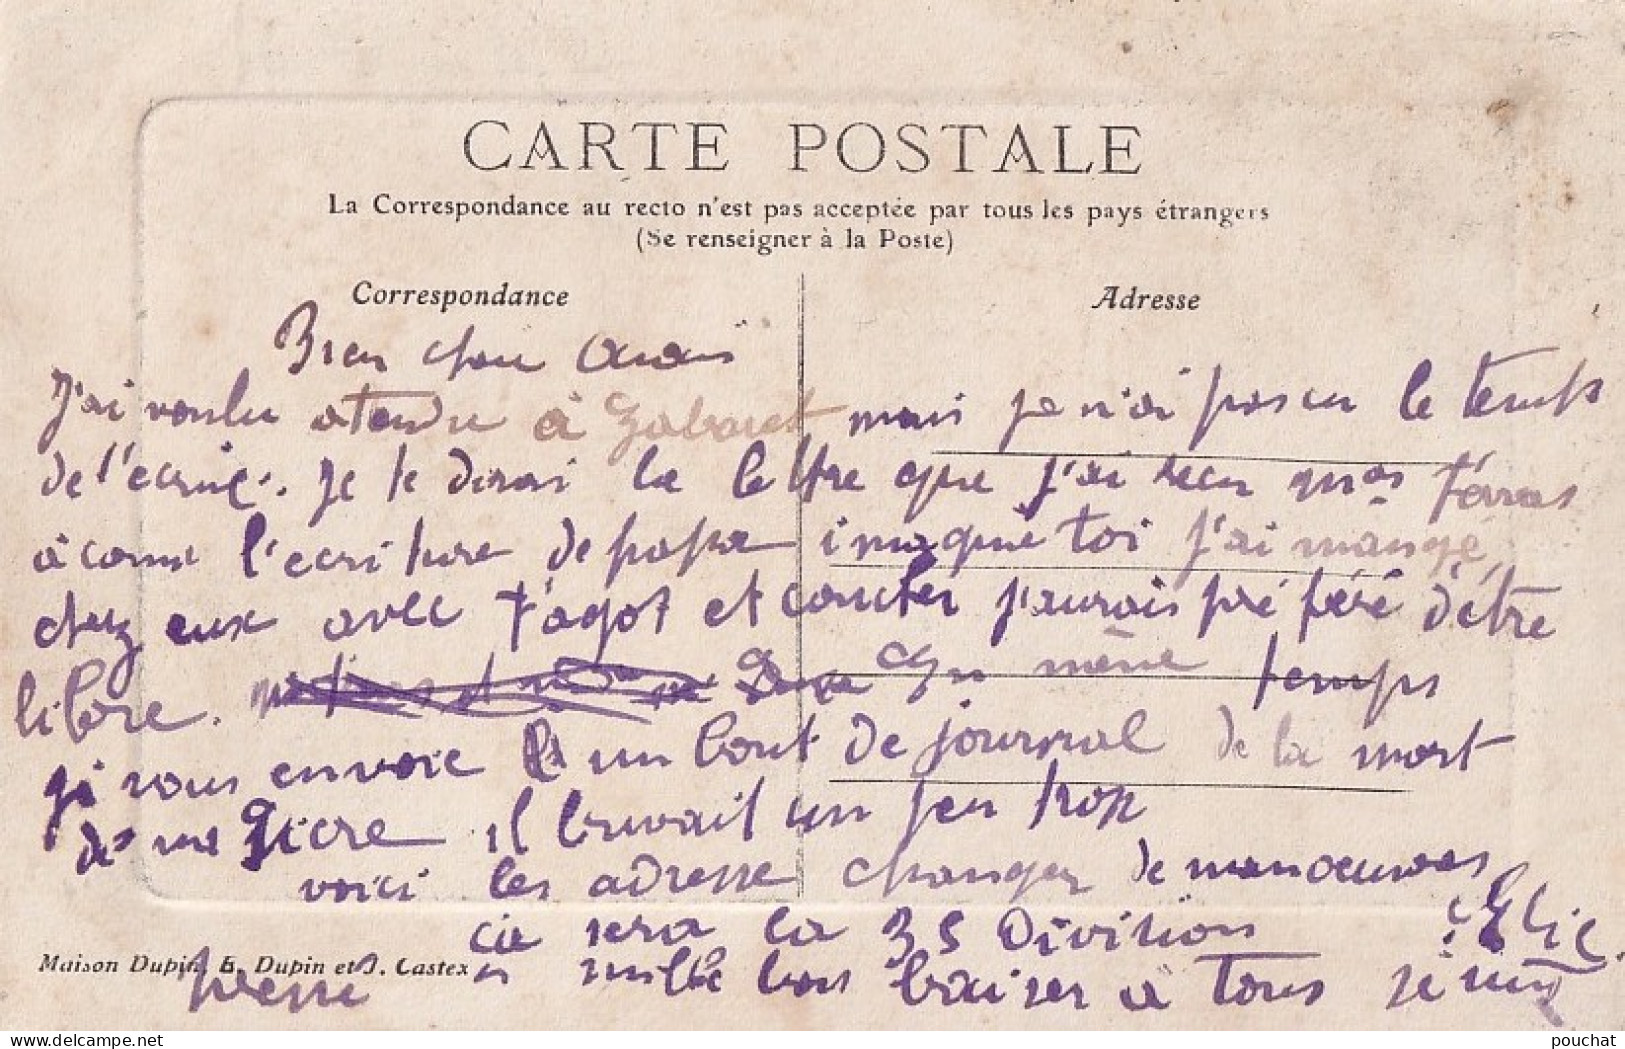 CARTE POSTALE
La Correspondance au recto n'est pas acceptée par tous les pays étrangers
(Se renseigner à la Poste)
Correspondance
Adresse
Bien cher
J'ai voulu atendre à Gabarret mais je n'ai pas eu le temps
de l'ecrire. Je te dirai la lettre que j'ai recu
l'ecriture de papa imagine toi j'ai mangé
chez eux avec fagot et coucher j'aurais préféré d'être
libre. En même temps
je vous envoie un bout de journal de la mort
de mr il buvait un peu trop
voici les adresse changer de manoeuvres
ce sera la 35 Division Elie
Maison Dupin, E. Dupin et J. Castex
mille bon baiser à tous